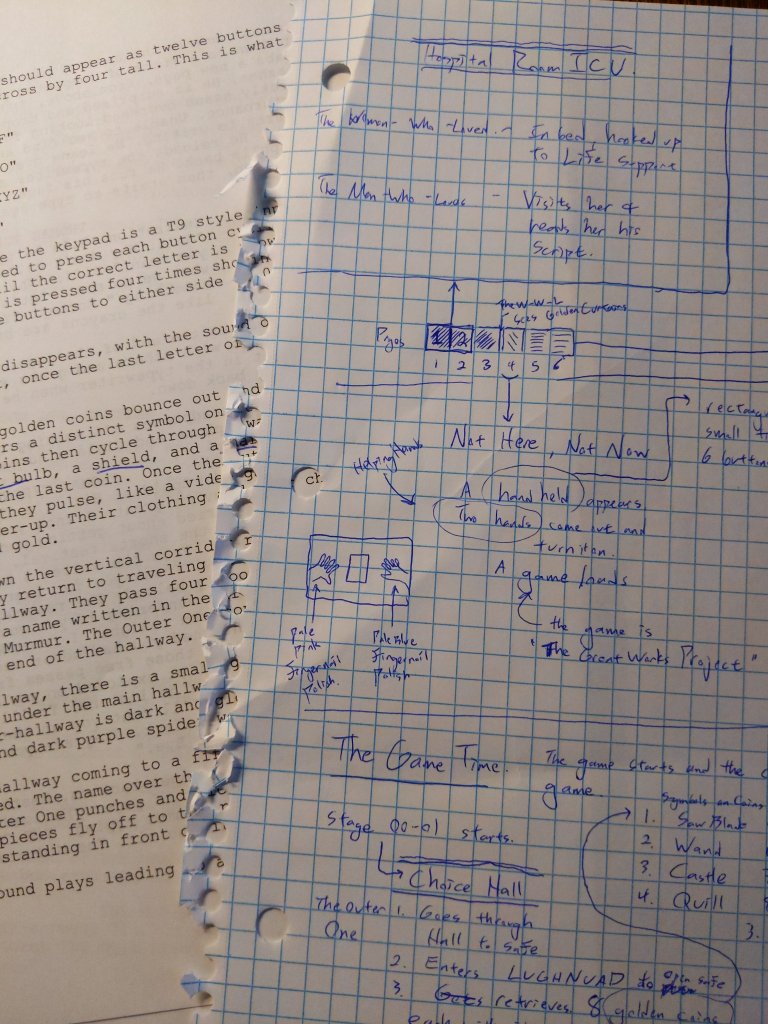 should appear as twelve buttons
ross by four tall. This is what
F"
O"
XYZ"
e the keypad is a T9 style
ed to press each button
il the correct letter is
is pressed four times
e buttons to either side
disappears, with the sound
, once the last letter
golden coins bounce out
rs a distinct symbol on
ins then cycle through
bulb, a shield, and a
the last coin. Once the
they pulse, like a vide
er-up. Their clothing
d gold.
wn the vertical corrid
y return to traveling
llway. They pass four
a name written in the
Murmur. The Outer One
end of the hallway.
lway, there is a smal
under the main hallw
r-hallway is dark and
nd dark purple spide
hallway coming to a
ed. The name over th
ter One punches and
pieces fly off to t
standing in front
ound plays leading
Hospital Room ICU.
The Woman-Who-Loved - In bed, hooked up
to Life Support
The Man-Who-Lands - Visits her &
reads her his
script.
The W-W-L
Sees Golden Curtains
Pages 1 2 3 4 5 6
Not Here, Not Now
rectang
small
6 button
Helping Hands
ch
A hand held appears
Two hands come out and
turn it on.
A game loads
the game is
"The Great Works Project"
Pale
Pink
Fingernail
Polish.
Pale Blue
Fingernail
Polish
The Game Time.
The game starts and the
game.
Symbols on Coins
1. Saw Blade
2. Wand
3. Castle
4. Quill
3.
Stage 00-01 starts.
Choice Hall
The Outer One
1. Goes through
Hall to safe
2. Enters LUGHNVAD to open safe
3. retrieves 8 golden coins
each